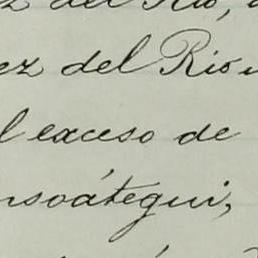 del Rio,
ez del Rio
l exceso de
nsoátegui,